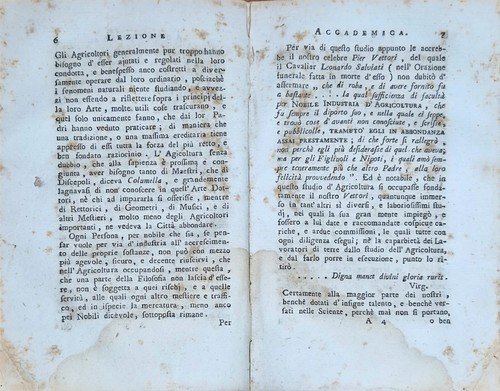 6 LEZIONE
Gli Agricoltori generalmente pur troppo hanno
bisogno d' esser ajutati e regolati nella loro
condotta, e benespesso anco costretti a diver-
samente operare dal loro ordinario, posciachè
i fenomeni naturali niente studiando, e avvez-
zi non essendo a riflettere sopra i principj del-
la loro Arte, molte utili cose trascurano, e
quel solo unicamente fanno, che dai lor Pa-
dri hanno veduto praticare; di maniera che
una tradizione, o una massima ereditaria tiene
appresso di essi tutta la forza del più retto, e
ben fondato raziocinio. L' Agricoltura senza
dubbio, che alla sapienza è prossima e con-
giunta, aver bisogno tanto di Maestri, che di
Discepoli, diceva Columella, e grandemente
lagnavasi di non conoscere in quell' Arte Dot-
tori, nè chi ad impararla si offerisse, mentre
di Rettorici, di Geometri, di Musici, e di
altri Mestieri, molto meno degli Agricoltori
importanti, ne vedeva la Città abbondare.
Ogni Persona, per nobile che sia, se pen-
sar vuole per via d' industria all' accrescimen-
to delle proprie sostanze, non può con mezzo
più agevole, sicuro, e decente riuscirvi, che
nell' Agricoltura occupandosi, mentre questa,
che una parte della Filosofia non lascia d' esse-
re, non è soggetta a quei rischj, e a quelle
servitù, alle quali ogni altro mestiere e traffi-
co, ed in ispecie la mercatura, meno anco
pei Nobili dicevole, sottoposta rimane.
Per
ACCADEMICA. 7
Per via di questo studio appunto le accreb-
be il nostro celebre Pier Vettori, del quale
il Cavalier Leonardo Salviati (nell' Orazione
funerale fatta in morte d' esso) non dubitò d'
affermare „ che di roba, e di avere fornito fu
a bastante ... la qual sufficienza di facultà
per NOBILE INDUSTRIA D' AGRICOLTURA, che
fu sempre il diporto suo, e nella quale il seppe,
e trovò cose d' avanti non conosciute, e scrisse,
e pubblicolle, TRAMETO' EGLI IN ABBONDANZA
ASSAI PRESTAMENTE; di che forte si rallegrò,
non perchè egli più desiderasse di quel che aveva,
ma per gli Figliuoli e Nipoti, i quali amò sem-
pre teneramente più che altro Padre, alla loro
felicità provvedendo „ Ed è notabile, che in
questo studio d' Agricoltura si occupasse fonda-
tamente il nostro Vettori, quantunque immer-
so in tant' altri sì diversi, e laboriosissimi stu-
dj, nei quali la sua gran mente impiegò, e
fossero a lui date e raccomandate cospicue ca-
riche, e ardue commissioni, le quali tutte con
ogni diligenza eseguì; nè la caparbietà dei La-
voratori di terre dallo studio dell' Agricoltura,
e dal farlo porre in esecuzione, punto lo ri-
tirò.
..... Digna manet divini gloria ruris.
Virg.
Certamente alla maggior parte dei nostri,
benchè dotati d' insigne talento, e benchè ver-
sati nelle Scienze, perchè mai non si portano,
A 4 o ben